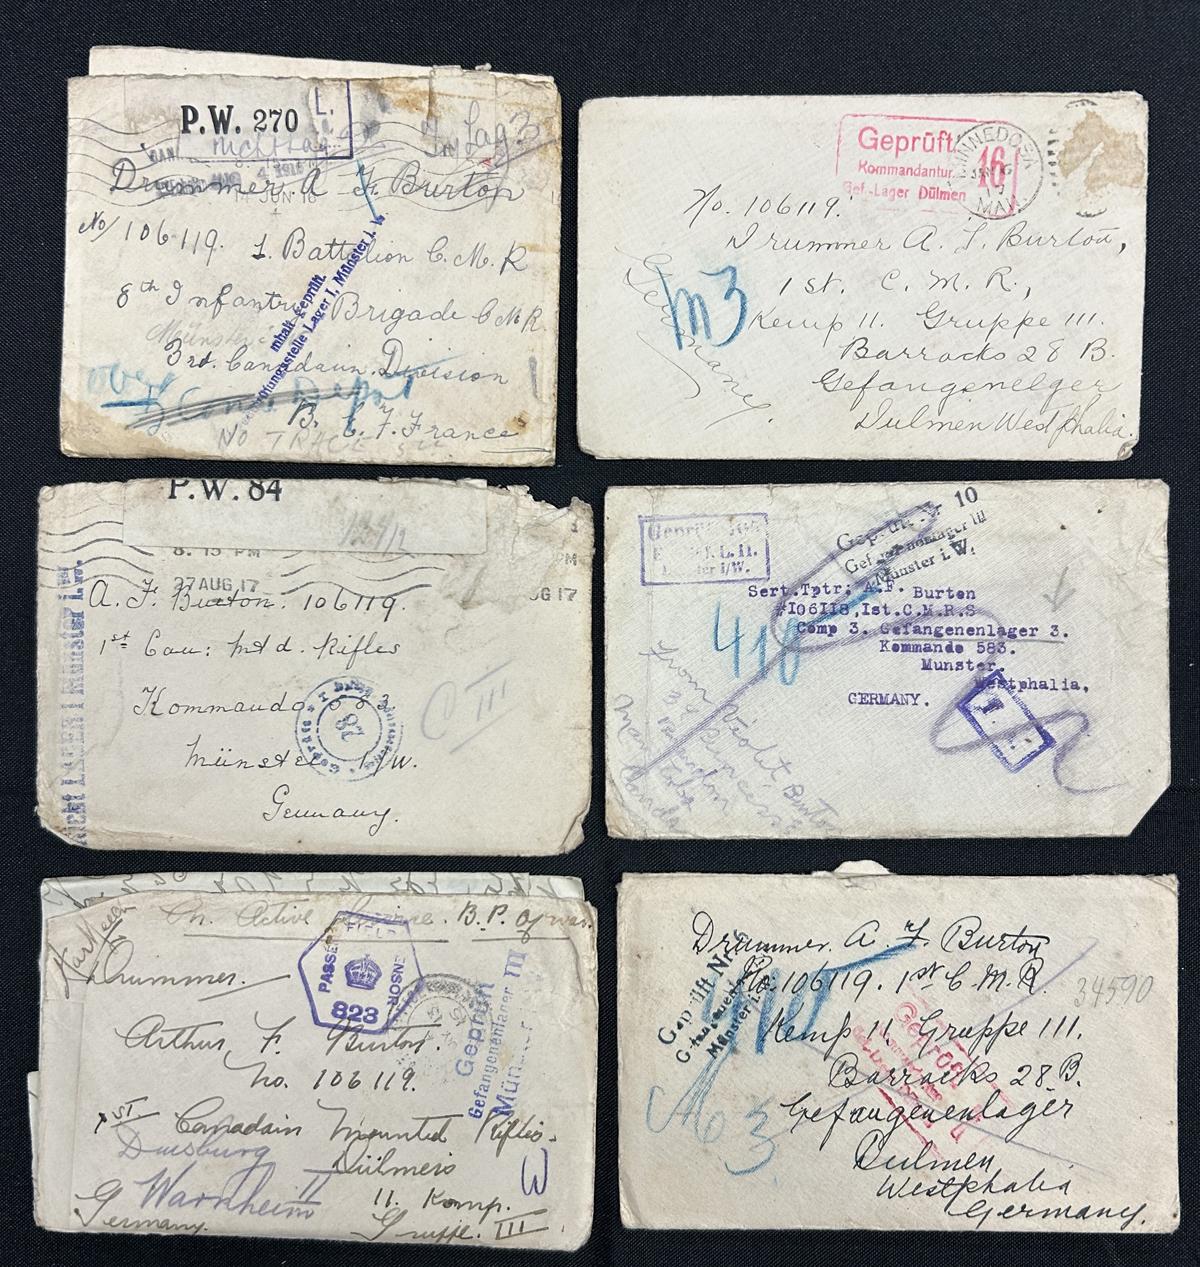 P.W. 270
L.
Nicht Lag.
Im Lag. 3
14 JUN 16
Drummer. A F Burton
No/ 106-119. 1. Battalion C. M. R
8th Infantry Brigade C M R.
Münster
3rd. Canadain. Division
Inhalt geprüft.
Prüfungsstelle Lager I, Münster i. W
Depot
B. E. F. France
NO TRACE
Geprüft
Kommandantur
Gef.-Lager Dülmen
16
MINNEDOSA
MAN.
No. 106119.
Drummer A. F. Burton,
1st. C. M. R.,
Kemp 11. Gruppe 111.
Barracks 28 B.
Gefangenelger
Dulmen Westphalia.
Germany.
M3
P.W. 84
8. 15 PM
27 AUG 17
PM
UG 17
A. F. Burton. 106119.
1st Can: Mtd. Rifles
Kommando
Münster I/W.
Germany.
C III
28
Nicht LAGER I Münster i.W.
Geprüft Nr. 10
Gefangenenlager III
Münster i. W.
Sert.Tptr: A.F. Burton
#106118,Ist.C.M.R.S
Comp 3. Gefangenenlager 3.
Kommando 583.
Munster.
Westphalia,
GERMANY.
410
From Violet Burton
Brandon
Manitoba
Canada
On Active Service. B. P. of war.
Drummer.
PASSED FIELD CENSOR
823
Arthur F. Burton.
No. 106119.
1st Canadain Mounted Rifles.
Duisburg
Dülmeis
Wanheim II
11. Komp.
Germany.
Gruppe. III
3
Geprüft
Gefangenenlager III
Münster
Drummer. A. F. Burton
No. 106119. 1st C. M. R.
34590
Kemp 11. Gruppe 111.
Barracks 28 B.
Gefangenenlager
Dulmen
Westphalia
Germany.
Geprüft Nr.
Gefangenen
Münster i.
Geprüft
M 3